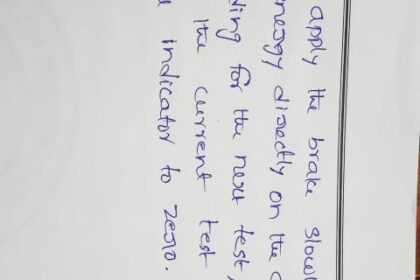 apply the brake slowl
energy directly on the
ding for the next test,
the current test
indicator to zero.